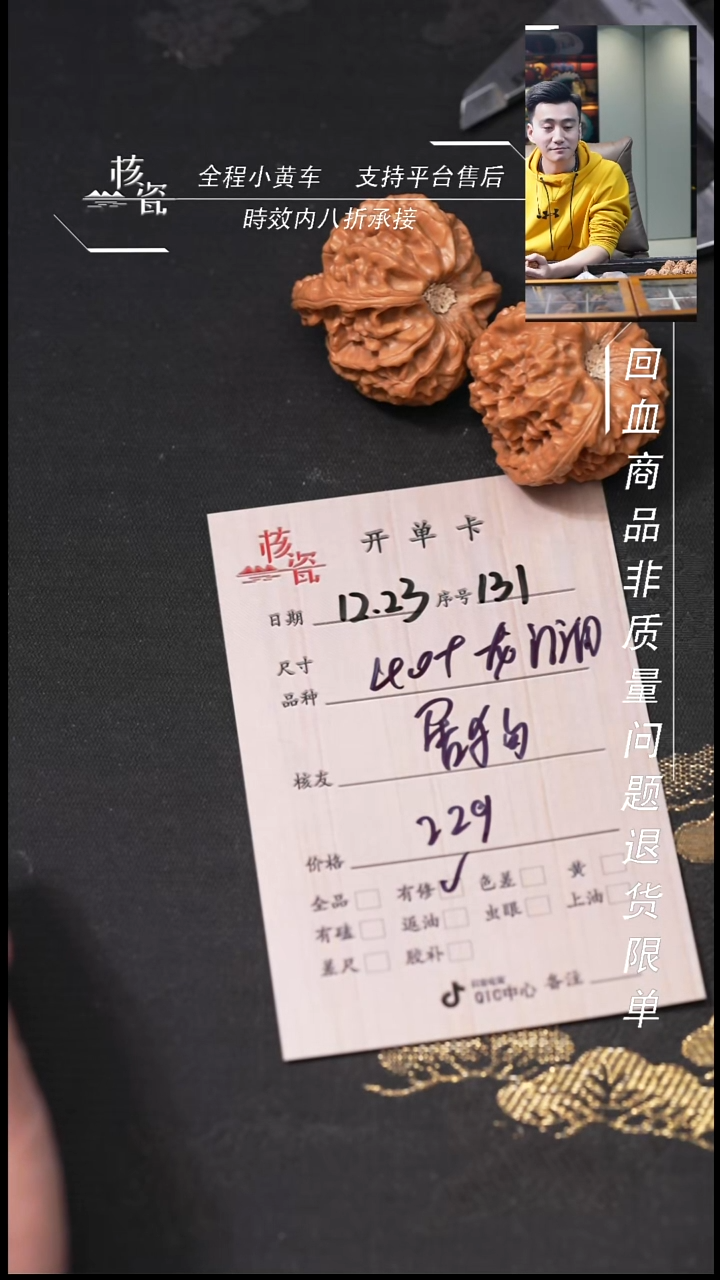 核瓷
全程小黄车 支持平台售后
時效内八折承接
回血商品非质量问题退货限单
核瓷
开单卡
日期 12.23 序号 131
尺寸
品种
核友
价格 229
全品 有修 ✓ 色差 黄
有磕 返油 虫眼 上油
差尺 胶补
QIC中心 备注